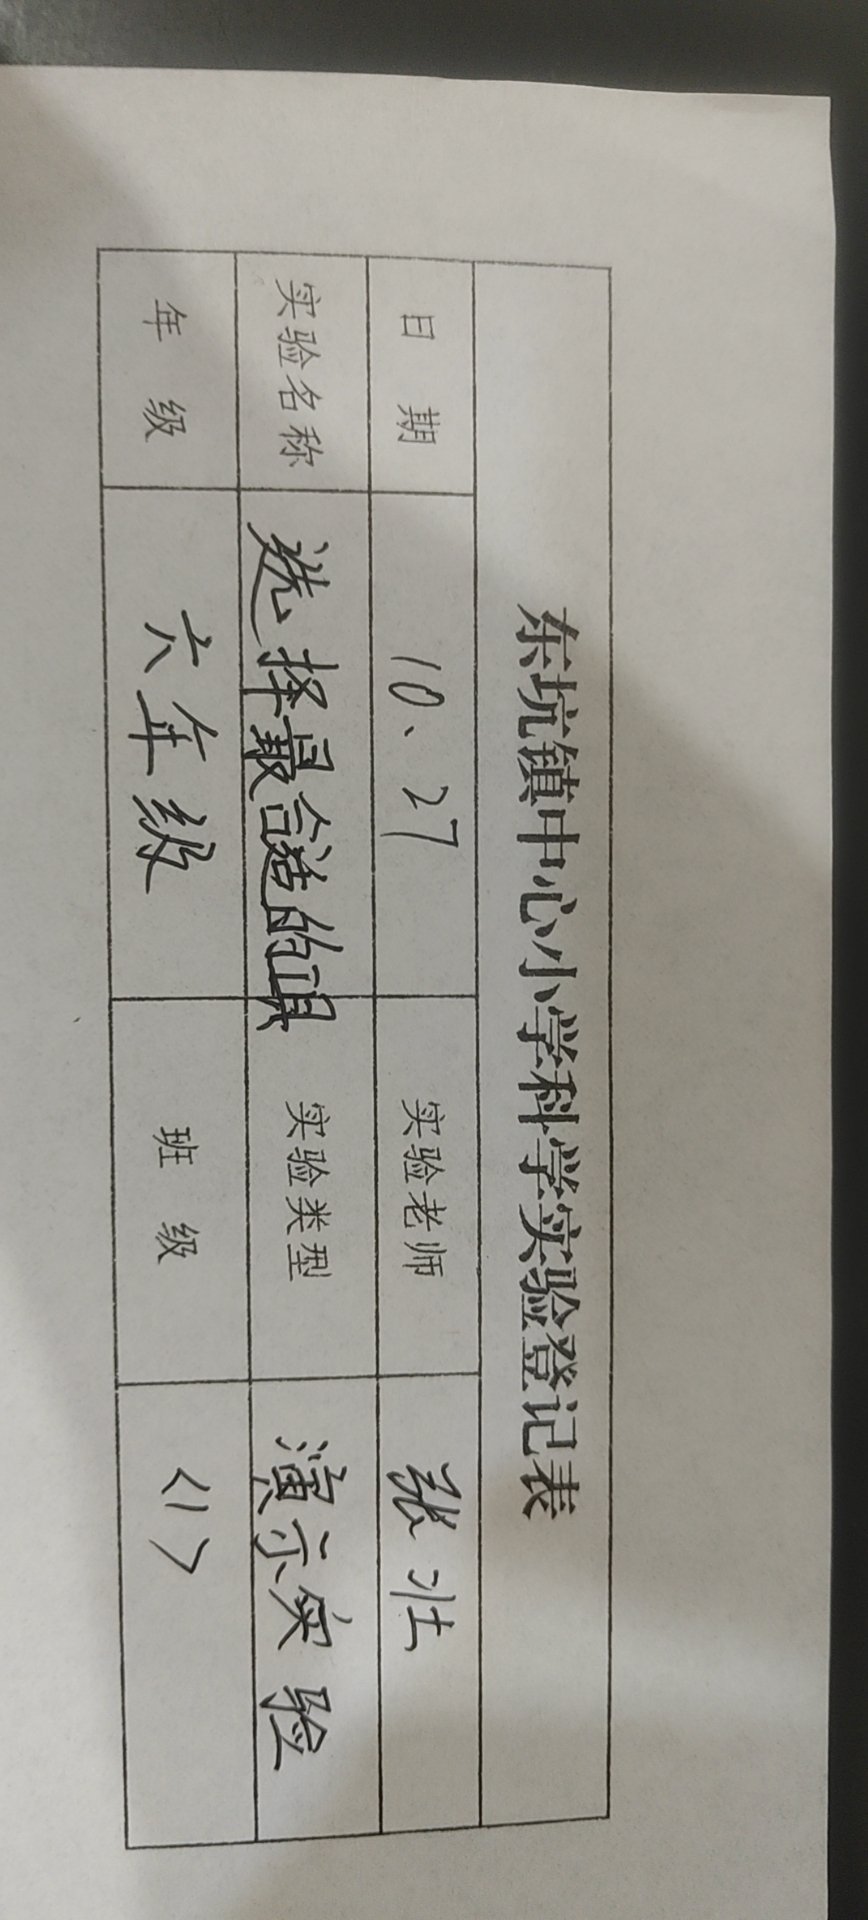 东坑镇中心小学科学实验登记表
日 期 10、27 实验老师 张壮
实验名称 选择最合适的工具 实验类型 演示实验
年 级 六年级 班 级 〈1〉